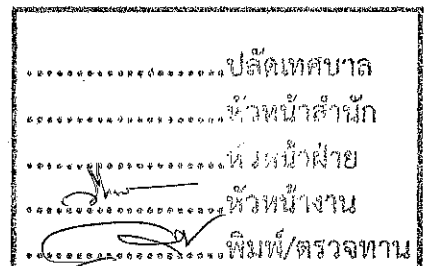 ....................ปลัดเทศบาล
....................หัวหน้าสำนัก
....................หัวหน้าฝ่าย
....................หัวหน้างาน
....................พิมพ์/ตรวจทาน